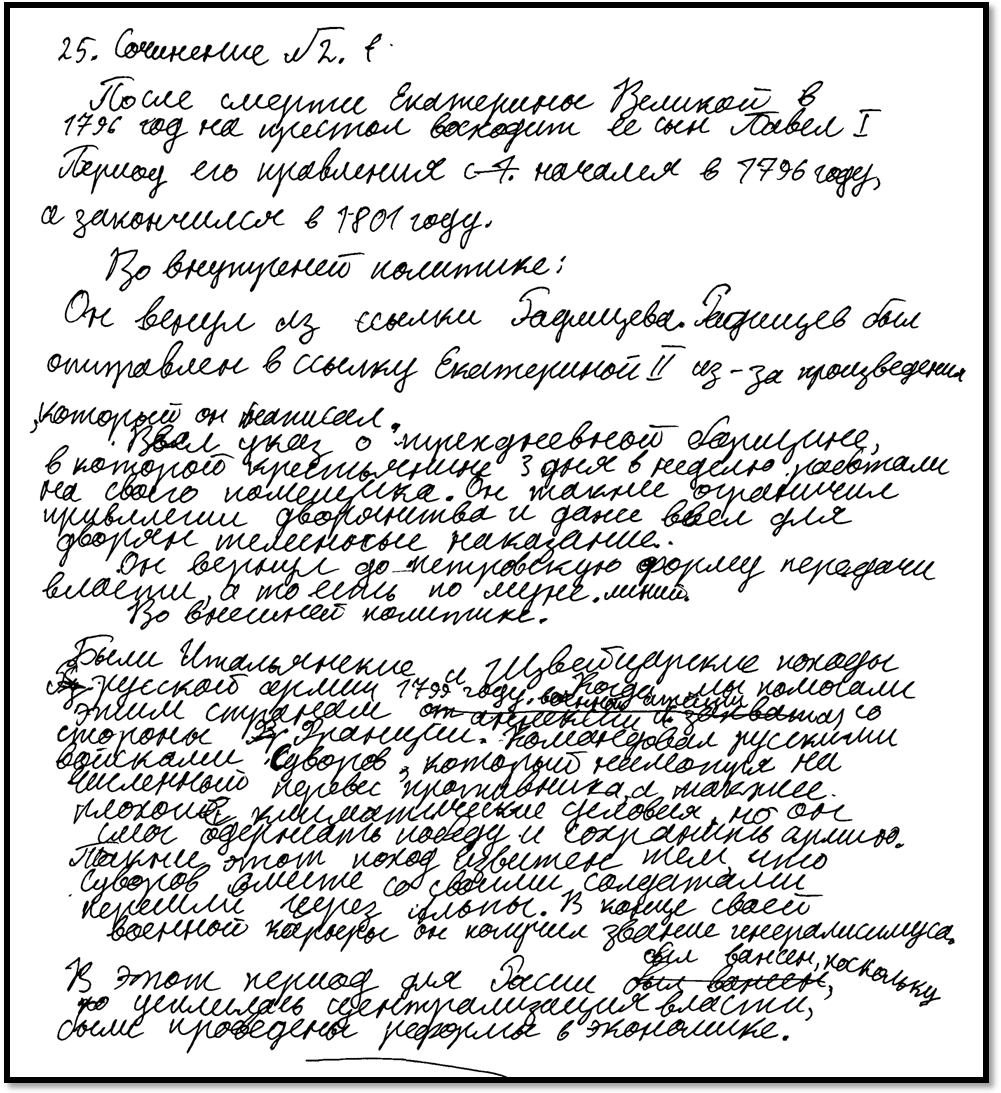 25. Сочинение №2.
После смерти Екатерины Великой в
1796 год на престол восходит ее сын Павел I
Период его правления с 1. начался в 1796 году,
а закончился в 1801 году.
Во внутреней политике:
Он венул из ссылки Радищева. Радищев был
отправлен в ссылку Екатериной II из-за произведения
, который он написал.
Ввел указ о трехдневной барщине,
в которой крестьянине 3 дня в неделю работали
на своего помещика. Он также ограничил
привилегии дворянства и даже ввел для
дворян телесные наказание.
Он вернул до-петровскую форму передачи
власти, а то есть по муж. линий.
Во внешней политике.
Были Итальянские и Швейцарские походы
русской армии 1799 году. Когда мы помогали
этим странам от военной атации со
стороны Франции. Командовал русскими
войсками Суворов, который несмотря на
численный перевес противника, а также
плохой климатические условия, но он
смог одержать победу и сохранить армию.
Также этот поход известен тем, что
Суворов вместе со своими солдатами
перешли через Альпы. В конце своей
военной карьеры он получил звание генералисимуса.
В этот период для Росии был важен, поскольку
усилилась централизация власти,
были проведены реформы в экономике.